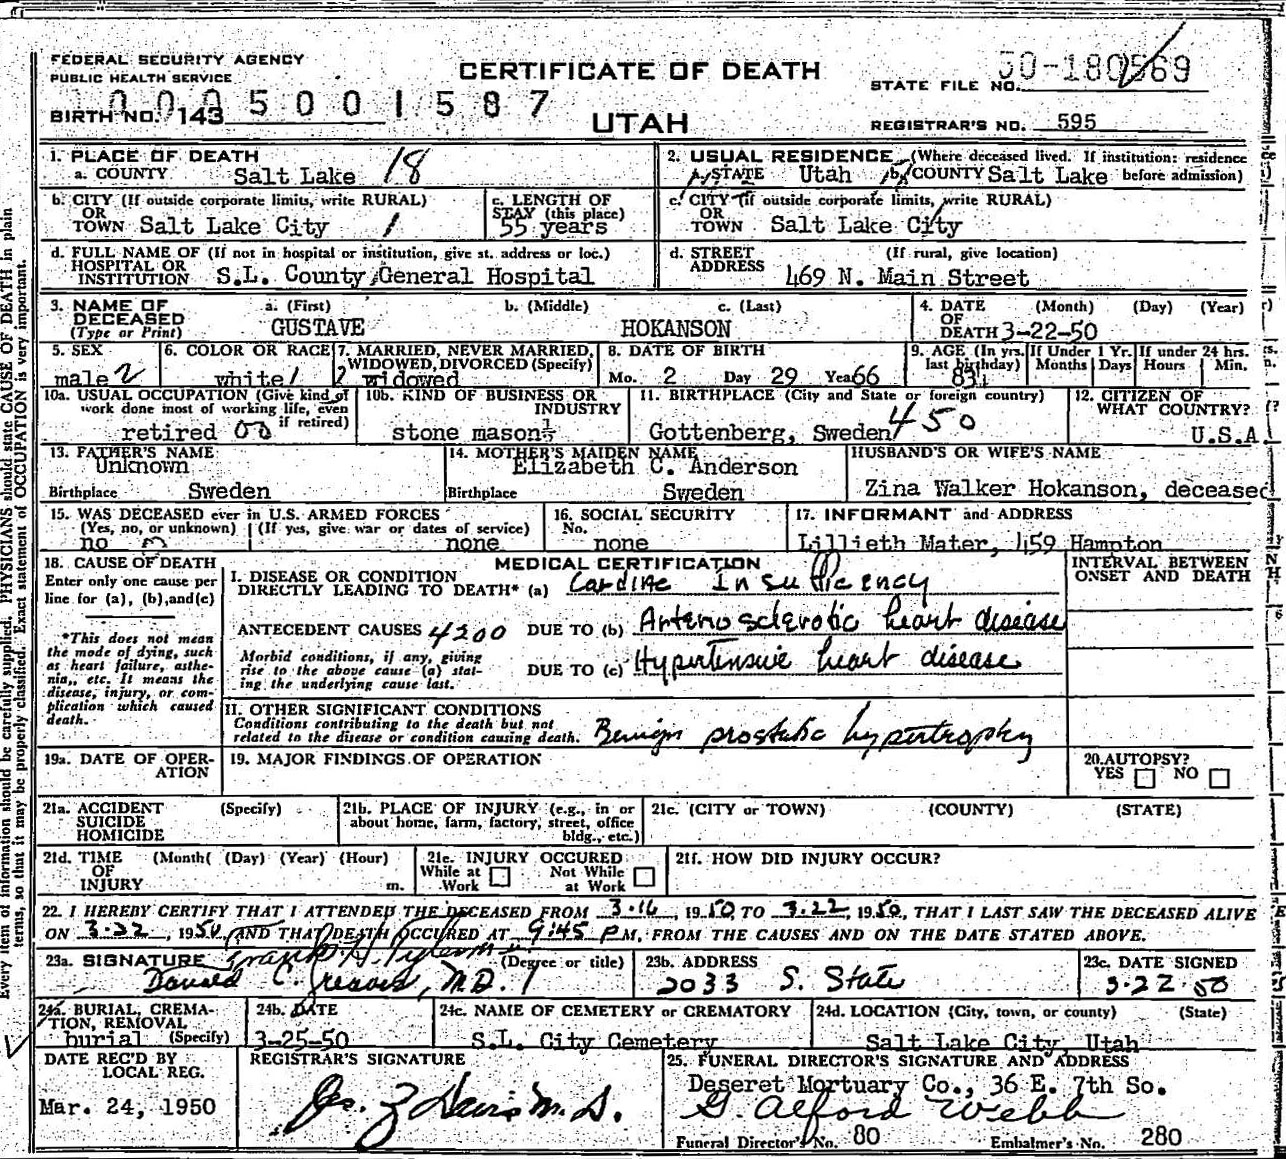 FEDERAL SECURITY AGENCY
PUBLIC HEALTH SERVICE
CERTIFICATE OF DEATH
STATE FILE NO. 50-180569
0005001587
BIRTH NO. 143
UTAH
REGISTRAR'S NO. 595
1. PLACE OF DEATH
a. COUNTY Salt Lake 18
2. USUAL RESIDENCE (Where deceased lived. If institution: residence
a. STATE Utah b. COUNTY Salt Lake before admission)
b. CITY (If outside corporate limits, write RURAL)
OR
TOWN Salt Lake City 1
c. LENGTH OF
STAY (this place)
55 years
c. CITY (if outside corporate limits, write RURAL)
OR
TOWN Salt Lake City
d. FULL NAME OF (If not in hospital or institution, give st. address or loc.)
HOSPITAL OR
INSTITUTION S.L. County General Hospital
d. STREET (If rural, give location)
ADDRESS 469 N. Main Street
3. NAME OF DECEASED
(Type or Print)
a. (First) b. (Middle) c. (Last)
GUSTAVE HOKANSON
4. DATE (Month) (Day) (Year)
OF
DEATH 3-22-50
5. SEX
male 2
6. COLOR OR RACE
white 1
7. MARRIED, NEVER MARRIED,
WIDOWED, DIVORCED (Specify)
2 widowed
8. DATE OF BIRTH
Mo. 2 Day 29 Year 66
9. AGE (In yrs. last birthday)
83
If Under 1 Yr.
Months Days
If under 24 hrs.
Hours Min.
10a. USUAL OCCUPATION (Give kind of
work done most of working life, even
if retired)
retired 00
10b. KIND OF BUSINESS OR
INDUSTRY
stone mason
11. BIRTHPLACE (City and State or foreign country)
Gottenberg, Sweden 450
12. CITIZEN OF
WHAT COUNTRY?
U.S.A
13. FATHER'S NAME
Unknown
Birthplace Sweden
14. MOTHER'S MAIDEN NAME
Elizabeth C. Anderson
Birthplace Sweden
HUSBAND'S OR WIFE'S NAME
Zina Walker Hokanson, deceased
15. WAS DECEASED ever in U.S. ARMED FORCES
(Yes, no, or unknown) (If yes, give war or dates of service)
no 0 none
16. SOCIAL SECURITY
No.
none
17. INFORMANT and ADDRESS
Lillieth Mater, 459 Hampton
18. CAUSE OF DEATH
Enter only one cause per
line for (a), (b), and (c)
*This does not mean
the mode of dying, such
as heart failure, asthe-
nia,, etc. It means the
disease, injury, or com-
plication which caused
death.
MEDICAL CERTIFICATION
I. DISEASE OR CONDITION
DIRECTLY LEADING TO DEATH* (a) Cardiac Insufficiency
ANTECEDENT CAUSES 4200 DUE TO (b) Arteriosclerotic heart disease
Morbid conditions, if any, giving
rise to the above cause (a) stat-
ing the underlying cause last.
DUE TO (c) Hypertensive heart disease
INTERVAL BETWEEN
ONSET AND DEATH
II. OTHER SIGNIFICANT CONDITIONS
Conditions contributing to the death but not
related to the disease or condition causing death. Benign prostatic hypertrophy
19a. DATE OF OPER-
ATION
19. MAJOR FINDINGS OF OPERATION
20. AUTOPSY?
YES NO
21a. ACCIDENT (Specify)
SUICIDE
HOMICIDE
21b. PLACE OF INJURY (e.g., in or
about home, farm, factory, street, office
bldg., etc.)
21c. (CITY or TOWN) (COUNTY) (STATE)
21d. TIME (Month( (Day) (Year) (Hour)
OF
INJURY m.
21e. INJURY OCCURED
While at Work Not While at Work
21f. HOW DID INJURY OCCUR?
22. I HEREBY CERTIFY THAT I ATTENDED THE DECEASED FROM 3-16, 1950, TO 3-22, 1950, THAT I LAST SAW THE DECEASED ALIVE
ON 3-22, 1950, AND THAT DEATH OCCURED AT 9:45 P.M. FROM THE CAUSES AND ON THE DATE STATED ABOVE.
23a. SIGNATURE (Degree or title)
Donald C. M.D. 1
23b. ADDRESS
2033 S. State
23c. DATE SIGNED
3-22-50
24a. BURIAL, CREMA-
TION, REMOVAL
burial (Specify)
24b. DATE
3-25-50
24c. NAME OF CEMETERY or CREMATORY
S.L. City Cemetery
24d. LOCATION (City, town, or county) (State)
Salt Lake City, Utah
DATE REC'D BY
LOCAL REG.
Mar. 24, 1950
REGISTRAR'S SIGNATURE
25. FUNERAL DIRECTOR'S SIGNATURE AND ADDRESS
Deseret Mortuary Co., 36 E. 7th So.
G. Alford Webb
Funeral Director's No. 80 Embalmer's No. 280
Every item of information should be carefully supplied. PHYSICIANS should state CAUSE OF DEATH in plain
terms, so that it may be properly classified. Exact statement of OCCUPATION is very important.